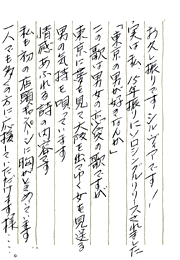 お久し振りです シルヴィアです！
実は私、15年振りにシングルリリースされました
「東京の男が好きなんか」
この歌は男女の悲恋の歌ですが
東京に夢を見て夜を出ゆく女を見送る
男の気持を唄っています
情感あふれる詩の内容です
私も初の店頭キャンペーンに胸がときめきます
一人でも多くの方に応援していただけます様‥‥。